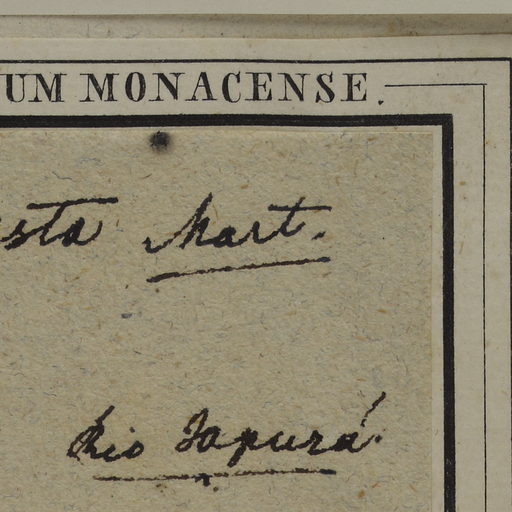 UM MONACENSE.
sta Mart.
Rio Japurá.